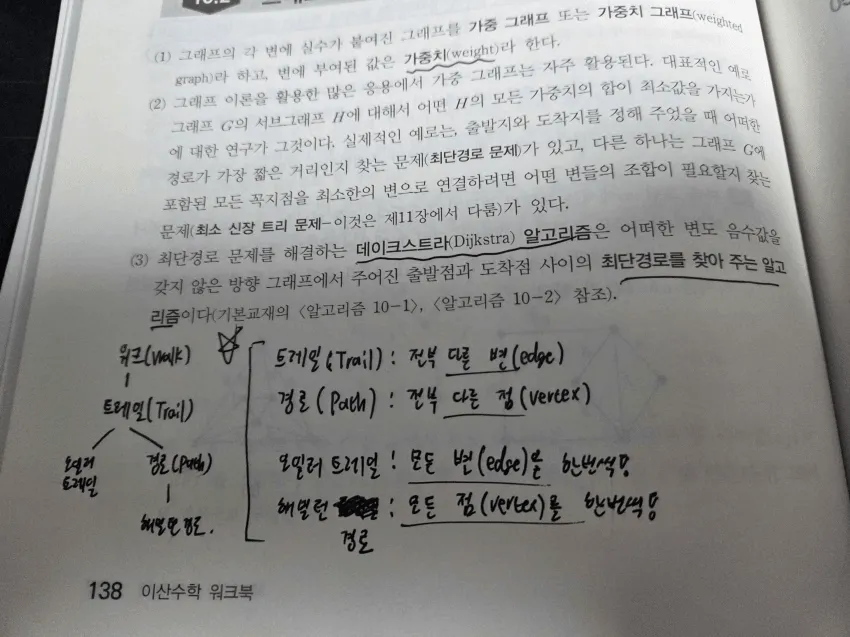 (1) 그래프의 각 변에 실수가 붙여진 그래프를 가중 그래프 또는 가중치 그래프(weighted
graph)라 하고, 변에 부여된 값은 가중치(weight)라 한다.
(2) 그래프 이론을 활용한 많은 응용에서 가중 그래프는 자주 활용된다. 대표적인 예로
그래프 G의 서브그래프 H에 대해서 어떤 H의 모든 가중치의 합이 최소값을 가지는가
에 대한 연구가 그것이다. 실제적인 예로는, 출발지와 도착지를 정해 주었을 때 어떠한
경로가 가장 짧은 거리인지 찾는 문제(최단경로 문제)가 있고, 다른 하나는 그래프 G에
포함된 모든 꼭지점을 최소한의 변으로 연결하려면 어떤 변들의 조합이 필요할지 찾는
문제(최소 신장 트리 문제-이것은 제11장에서 다룸)가 있다.
(3) 최단경로 문제를 해결하는 데이크스트라(Dijkstra) 알고리즘은 어떠한 변도 음수값을
갖지 않은 방향 그래프에서 주어진 출발점과 도착점 사이의 최단경로를 찾아 주는 알고
리즘이다(기본교재의 〈알고리즘 10-1〉, 〈알고리즘 10-2〉 참조).
워크(walk)
트레일(Trail)
오일러
트레일
경로(Path)
해밀턴 경로.
트레일(Trail) : 전부 다른 변(edge)
경로(Path) : 전부 다른 점(vertex)
오일러 트레일 : 모든 변(edge)을 한번씩
해밀턴 : 모든 점(vertex)를 한번씩
경로
138 이산수학 워크북